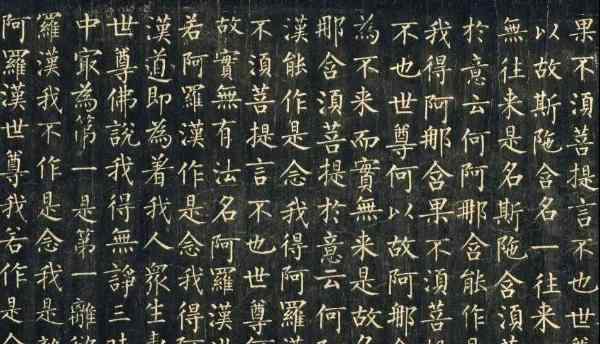 果不須菩提言不也世
以故斯陁含名一往来
無往来是名斯陁含須菩
於意云何阿那含能作是
我得阿那含果不須菩提
不也世尊何以故阿那含
為不来而實無来是故名
那含須菩提於意云何
漢能作是念我得阿羅漢
不須菩提言不也世尊何
故實無有法名阿羅漢世
若阿羅漢作是念我得阿
漢道即為着我人衆生壽
世尊佛說我得無諍三昧
中㝡為第一是第一離欲
羅漢我不作是念我是離
阿羅漢世尊我若作是念